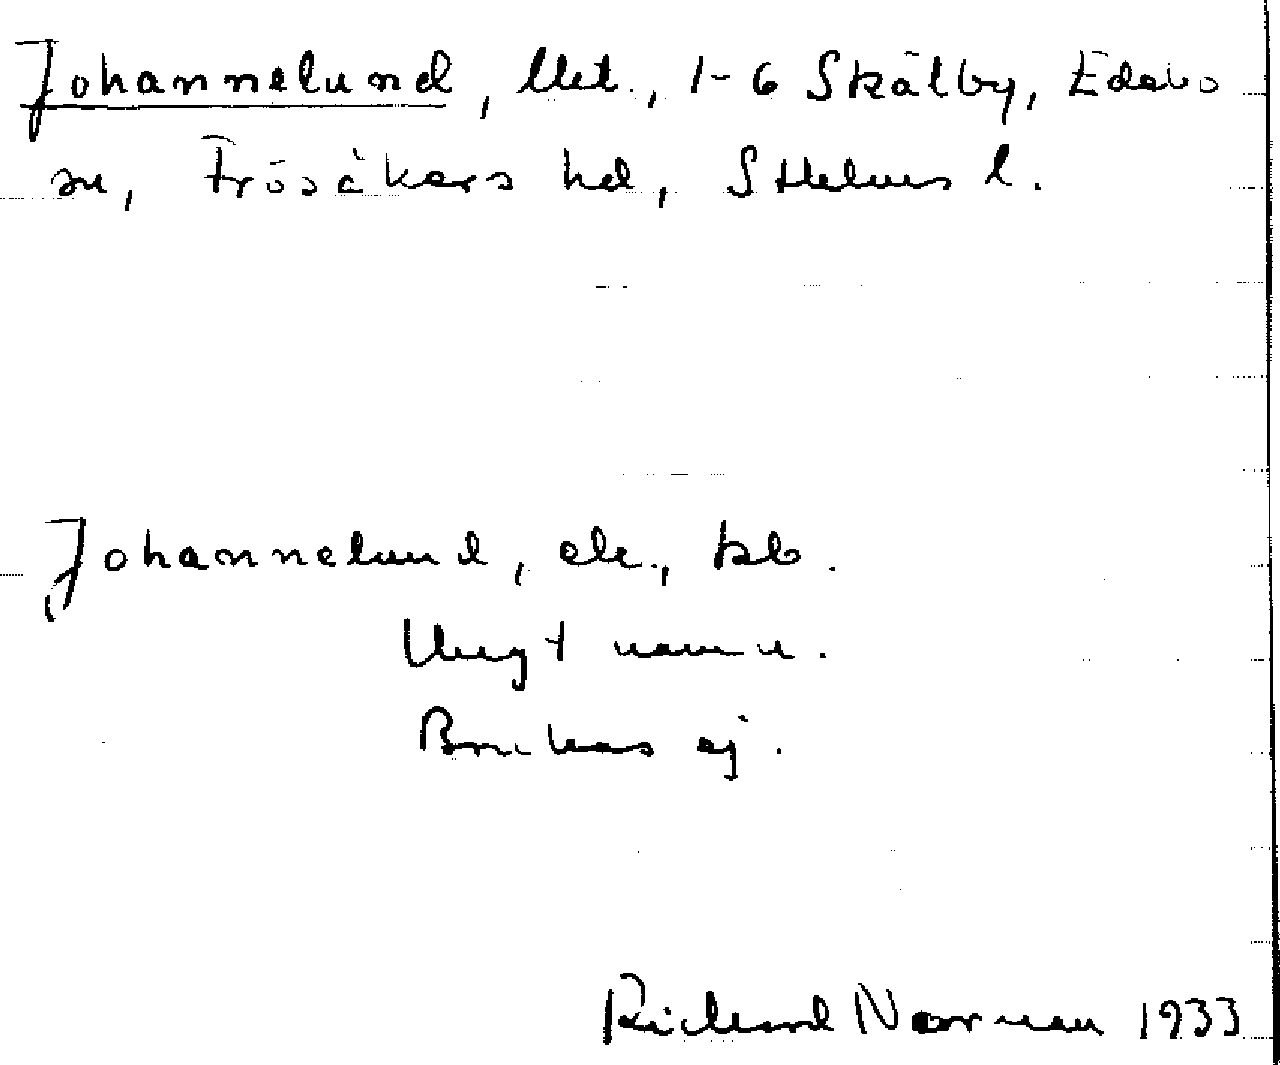 Johannelund, lht., 1-6 Skälby, Edebo
sn, Frösåkers hd, Sthlms l.
Johannelund, ek., bb.
Ungt namn.
Brukas ej.
Richard Norrman 1933